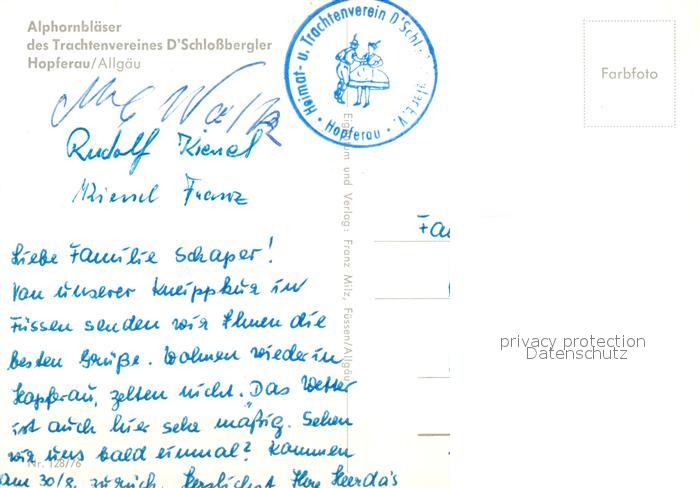 Alphornbläser
des Trachtenvereines D'Schloßbergler
Hopferau/Allgäu
Heimat- u. Trachtenverein D'Schl
e.V.
Hopferau
Farbfoto
Rudolf Kienel
Kienel Franz
Eigentum und Verlag: Franz Milz, Füssen/Allgäu
Fa
Liebe Familie Schaper!
Von unserer Kneippkur in
Füssen senden wir Ihnen die
besten Grüße. Wohnen wieder in
Hopferau, zelten nicht. Das Wetter
ist auch hier sehr mäßig. Sehen
wir uns bald einmal? Kommen
Nr. 128/76
am 30/8. zurück. Herzlichst Ihre Heerda's
privacy protection
Datenschutz